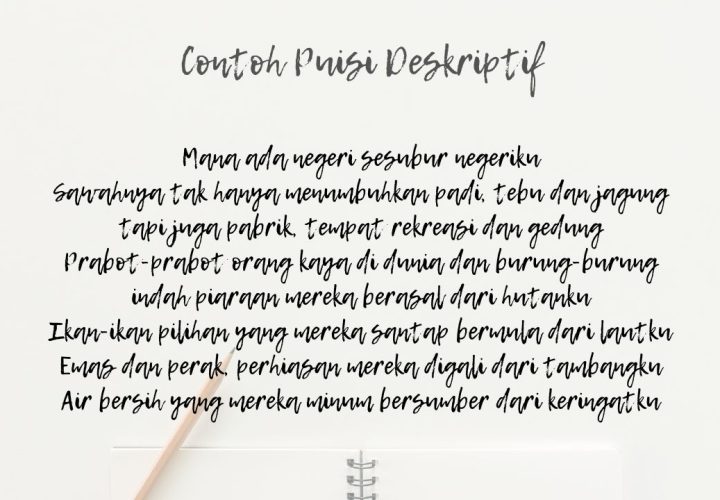 Contoh Puisi Deskriptif
Mana ada negeri sesubur negeriku
Sawahnya tak hanya menumbuhkan padi, tebu dan jagung
tapi juga pabrik, tempat rekreasi dan gedung
Prabot-prabot orang kaya di dunia dan burung-burung
indah piaraan mereka berasal dari hutanku
Ikan-ikan pilihan yang mereka santap bermula dari lautku
Emas dan perak, perhiasan mereka digali dari tambangku
Air bersih yang mereka minum bersumber dari keringatku